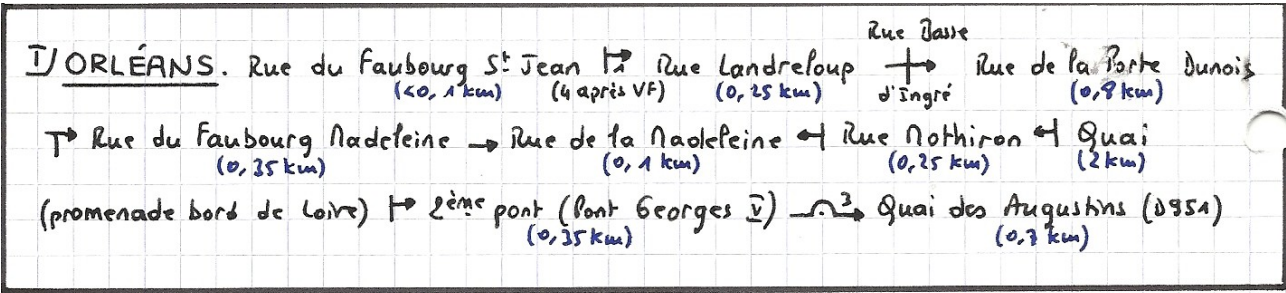 Rue Basse
I/ ORLÉANS. Rue du Faubourg St Jean Rue Landreloup Rue de la Porte Dunois
(<0,1 km) (4 après VF) (0,25 km) d'Ingré (0,8 km)
Rue du Faubourg Madeleine → Rue de la Madeleine Rue Mothiron Quai
(0,35 km) (0,1 km) (0,25 km) (2 km)
(promenade bord de Loire) 2ème pont (Pont Georges V) 3 Quai des Augustins (D951)
(0,35 km) (0,7 km)